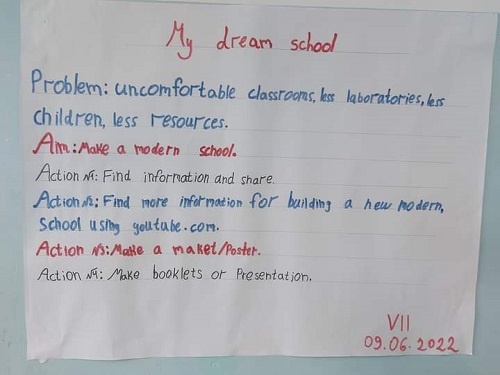 My dream school
Problem: uncomfortable classrooms, less laboratories, less
children, less resources.
Aim: Make a modern school.
Action №1: Find information and share.
Action №2: Find more information for building a new modern,
school using youtube.com.
Action №3: Make a maket/Poster.
Action №4: Make booklets or Presentation.
VII
09.06.2022